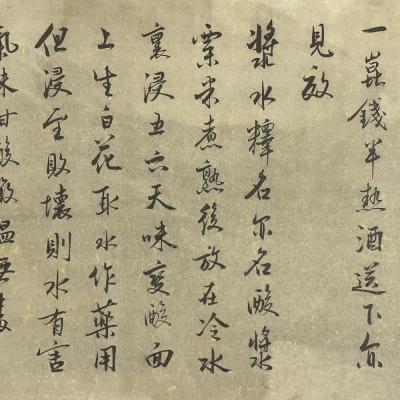 一錢半熱酒送下亦
見效
漿水釋名亦名酸漿
粟米煮熟後放在冷水
裏浸五六天味變酸面
上生白花取水作藥用
但浸至敗壞則水有害
氣味甘酸微溫無毒